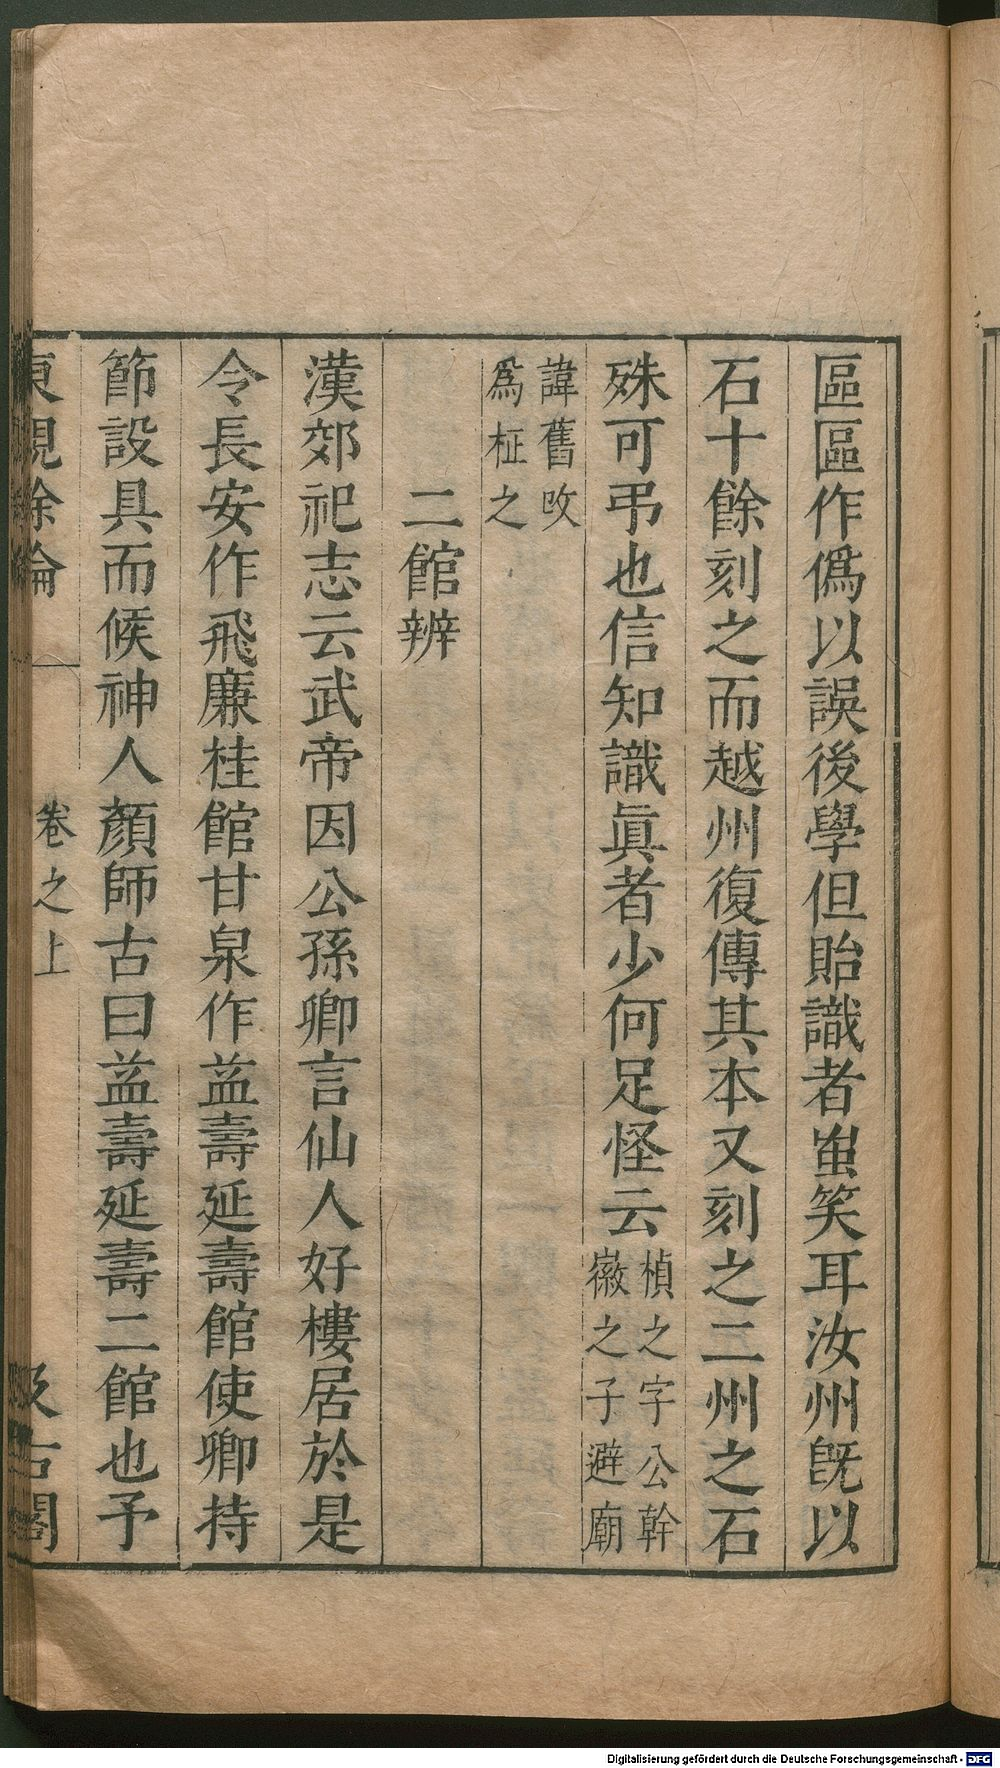 區區作僞以誤後學但貽識者蚩笑耳汝州旣以
石十餘刻之而越州復傳其本又刻之二州之石
殊可弔也信知識眞者少何足怪云
楨之字公幹
徽之子避廟
諱舊攺
爲柾之
二館辨
漢郊祀志云武帝因公孫卿言仙人好樓居於是
令長安作飛廉桂館甘泉作益壽延壽館使卿持
節設具而候神人顏師古曰益壽延壽二館也予
東觀餘論
卷之上
汲古閣
Digitalisierung gefördert durch die Deutsche Forschungsgemeinschaft - DFG